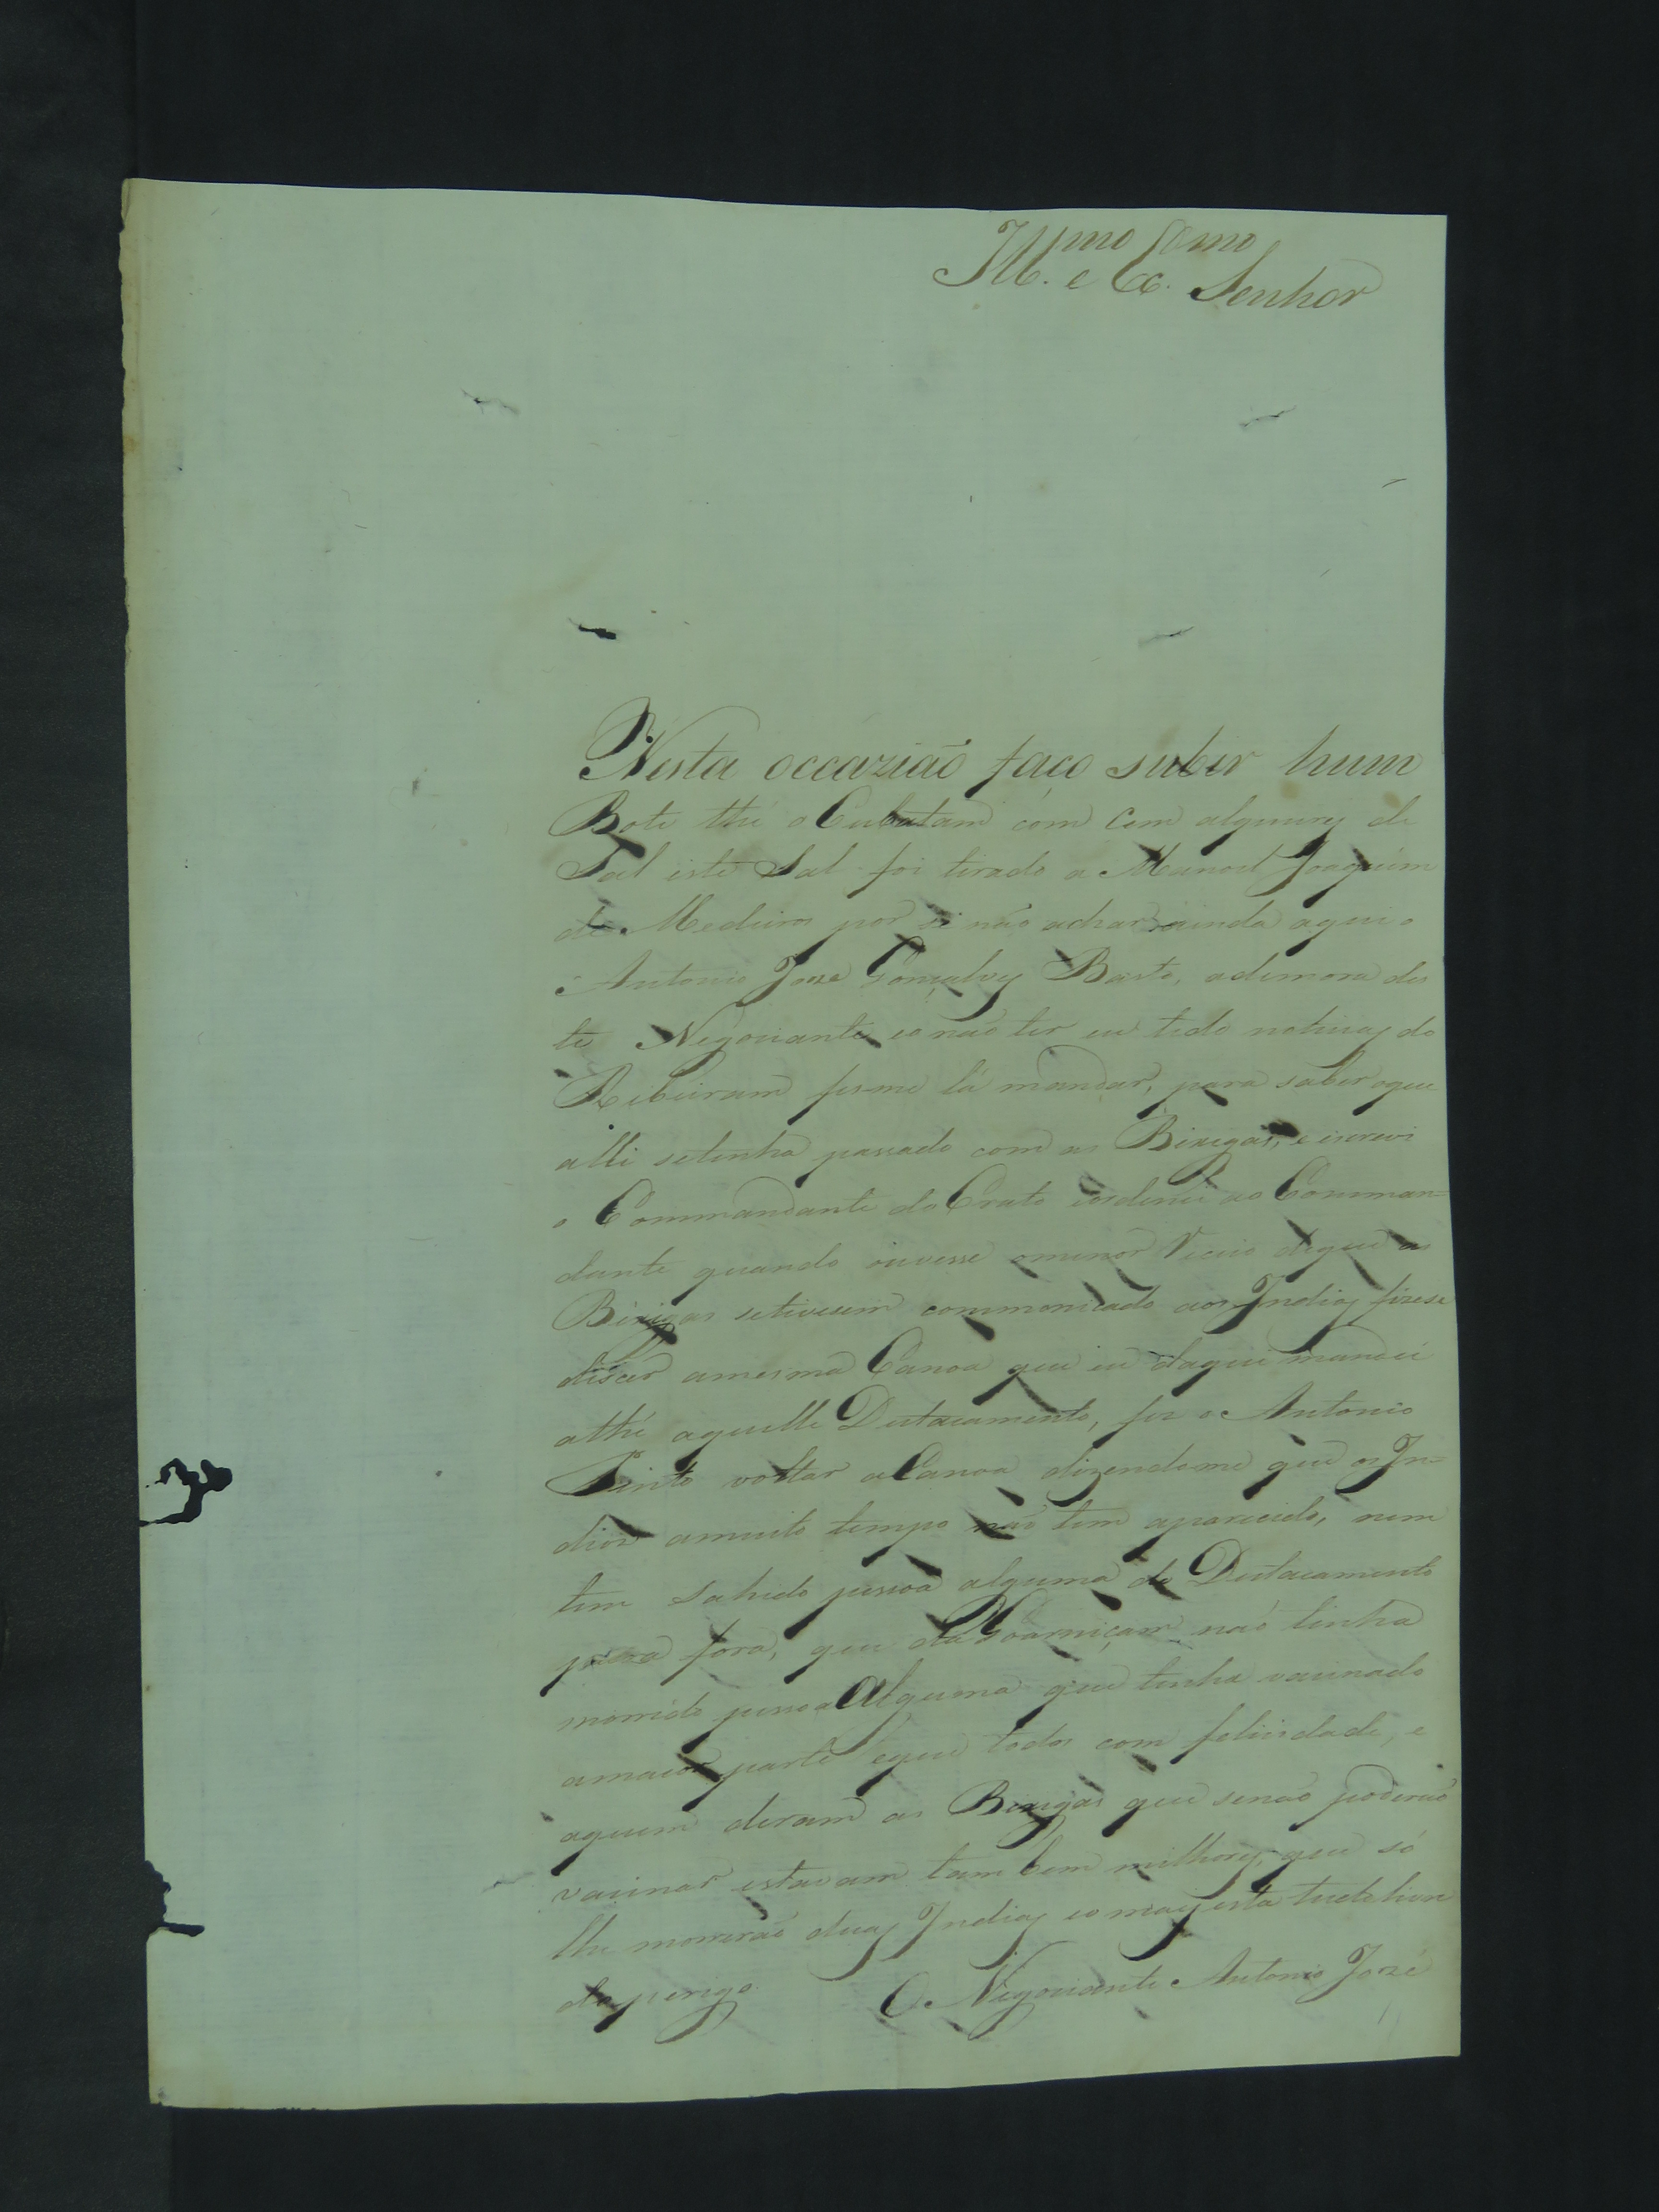 Ill.mo e Ex.mo Senhor
Nesta occazião faço subir hum
Bote thé o Cubatam com Cem alqueires de
Sal este Sal foi tirado a Manoel Joaquim
de Medeiros por se não achar ainda aqui o
Antonio Joze Gonçalvez Basto, a demora des
te Negociante eo não ter eu tido noticias do
Ribeiram fesme lá mandar, para saber oque
alli setenha passado com as Bixigas, e escrevi
o Commandante do Crato eordenei ao Comman=
dante quando ouvesse omenor Receio deque as
Bixigas setivesem commonicado aos Indios fizese
déscer amesma Canoa que eu daqui mandei
athé aquelle Destacamento, fez o Antonio
Pinto voltar aCanoa dizendome que os In=
dios amuito tempo não tem aparecido, nem
tem Sahido pessoa alguma do Destacamento
para fora, que da Goarniçam não tinha
morrido pessoa Alguma que tinha vacinado
amaior parte eque todos com felicidade, e
aquem deram as Bexigas que senão poderão
vacinar estavam tambem milhores, que só
lhe morrerão duas Indias eomais esta tudo livre
do perigo. O Negociante Antonio Jozé